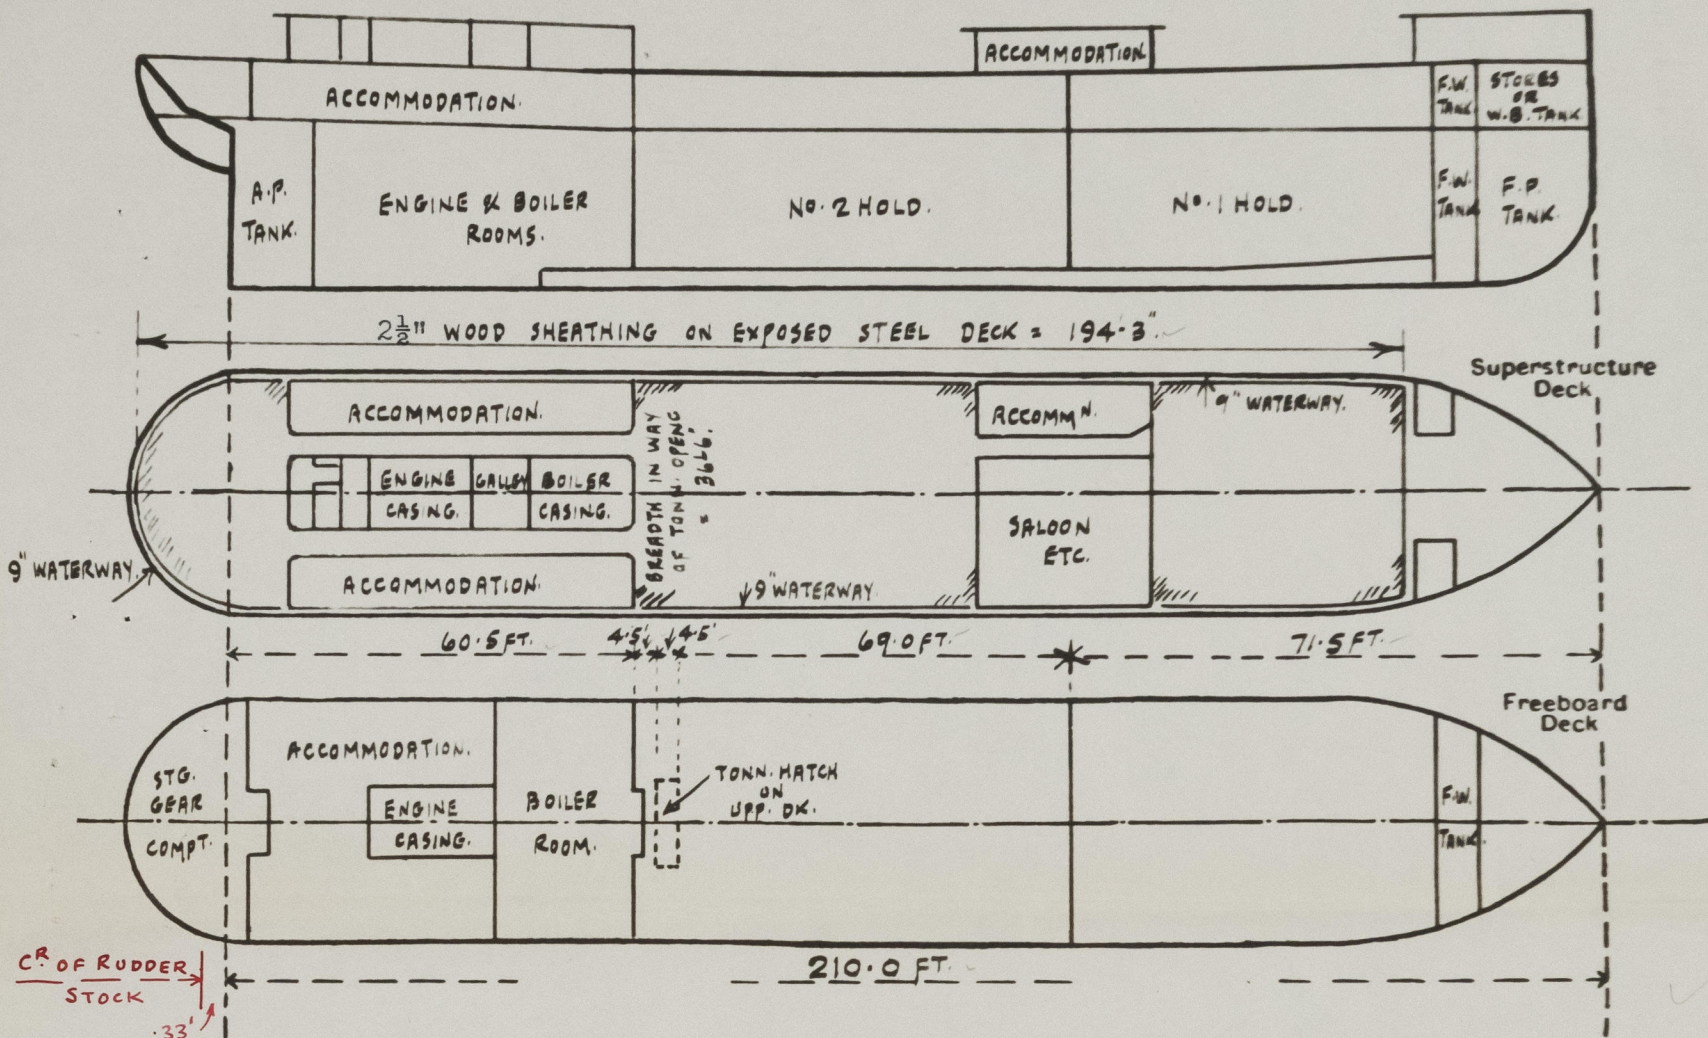 ACCOMMODATION.
ACCOMMODATION.
F.W.
TANK
STORES
OR
W.B. TANK
A.P.
TANK.
ENGINE & BOILER
ROOMS.
No. 2 HOLD.
No. 1 HOLD.
F.W.
TANK
F.P.
TANK.
2½" WOOD SHEATHING ON EXPOSED STEEL DECK = 194·3"
Superstructure
Deck
ACCOMMODATION.
BREADTH IN WAY
OF TONN. OPENG
ACCOMMN.
9" WATERWAY.
ENGINE
CASING.
GALLEY
BOILER
CASING.
SALOON
ETC.
9" WATERWAY.
ACCOMMODATION.
9" WATERWAY.
60·5 FT.
4·5'
4·5'
69·0 FT.
71·5 FT.
Freeboard
Deck
ACCOMMODATION.
STG.
GEAR
COMPT.
ENGINE
CASING.
BOILER
ROOM.
TONN. HATCH
ON
UPP. DK.
F.W.
TANK.
CR. OF RUDDER
STOCK
·33'
210·0 FT.